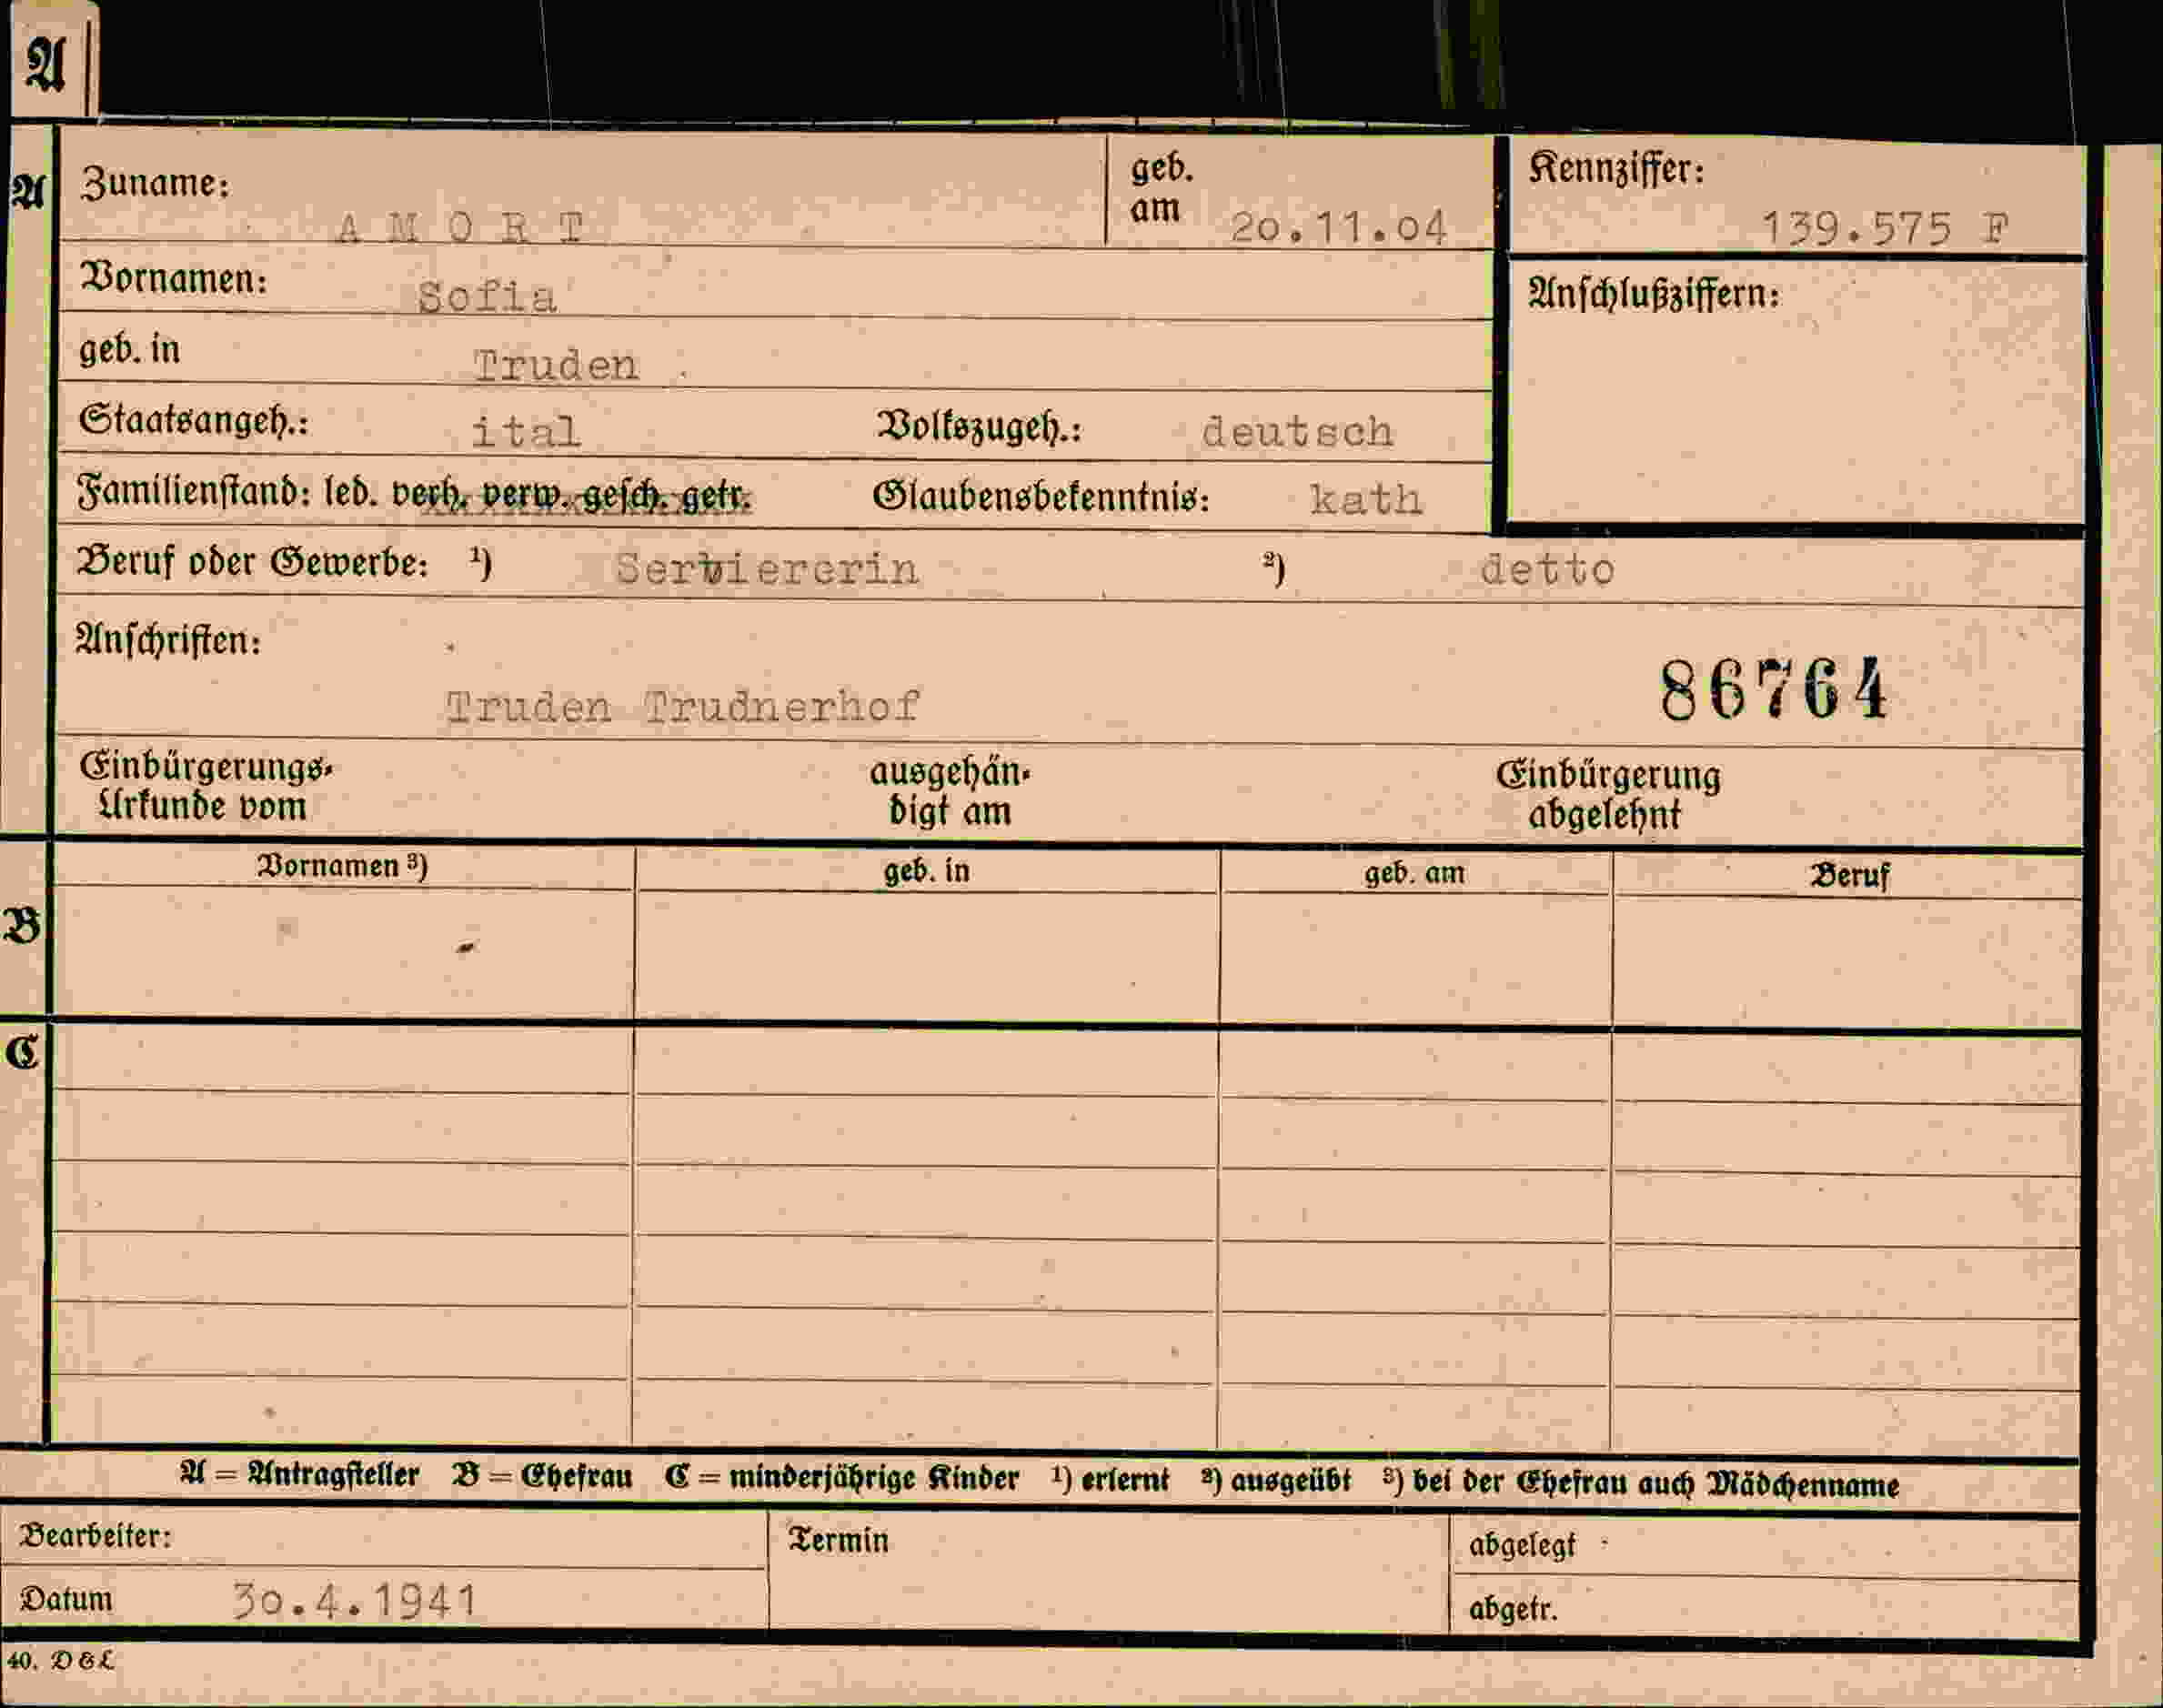 A
A
Zuname: A M O R T
geb. am 20.11.04
Kennziffer: 139.575 F
Vornamen: Sofia
Anschlußziffern:
geb. in Truden .
Staatsangeh.: ital Volkszugeh.: deutsch
Familienstand: led. verh. verw. gesch. getr. Glaubensbekenntnis: kath
Beruf oder Gewerbe: ¹) Serviererin ²) detto
Anschriften:
86764
Truden Trudnerhof
Einbürgerungs- ausgehän- Einbürgerung
Urkunde vom digt am abgelehnt
Vornamen ³) geb. in geb. am Beruf
B
C
A = Antragsteller B = Ehefrau C = minderjährige Kinder ¹) erlernt ²) ausgeübt ³) bei der Ehefrau auch Mädchenname
Bearbeiter: Termin abgelegt
Datum 30.4.1941 abgetr.
40. D & L